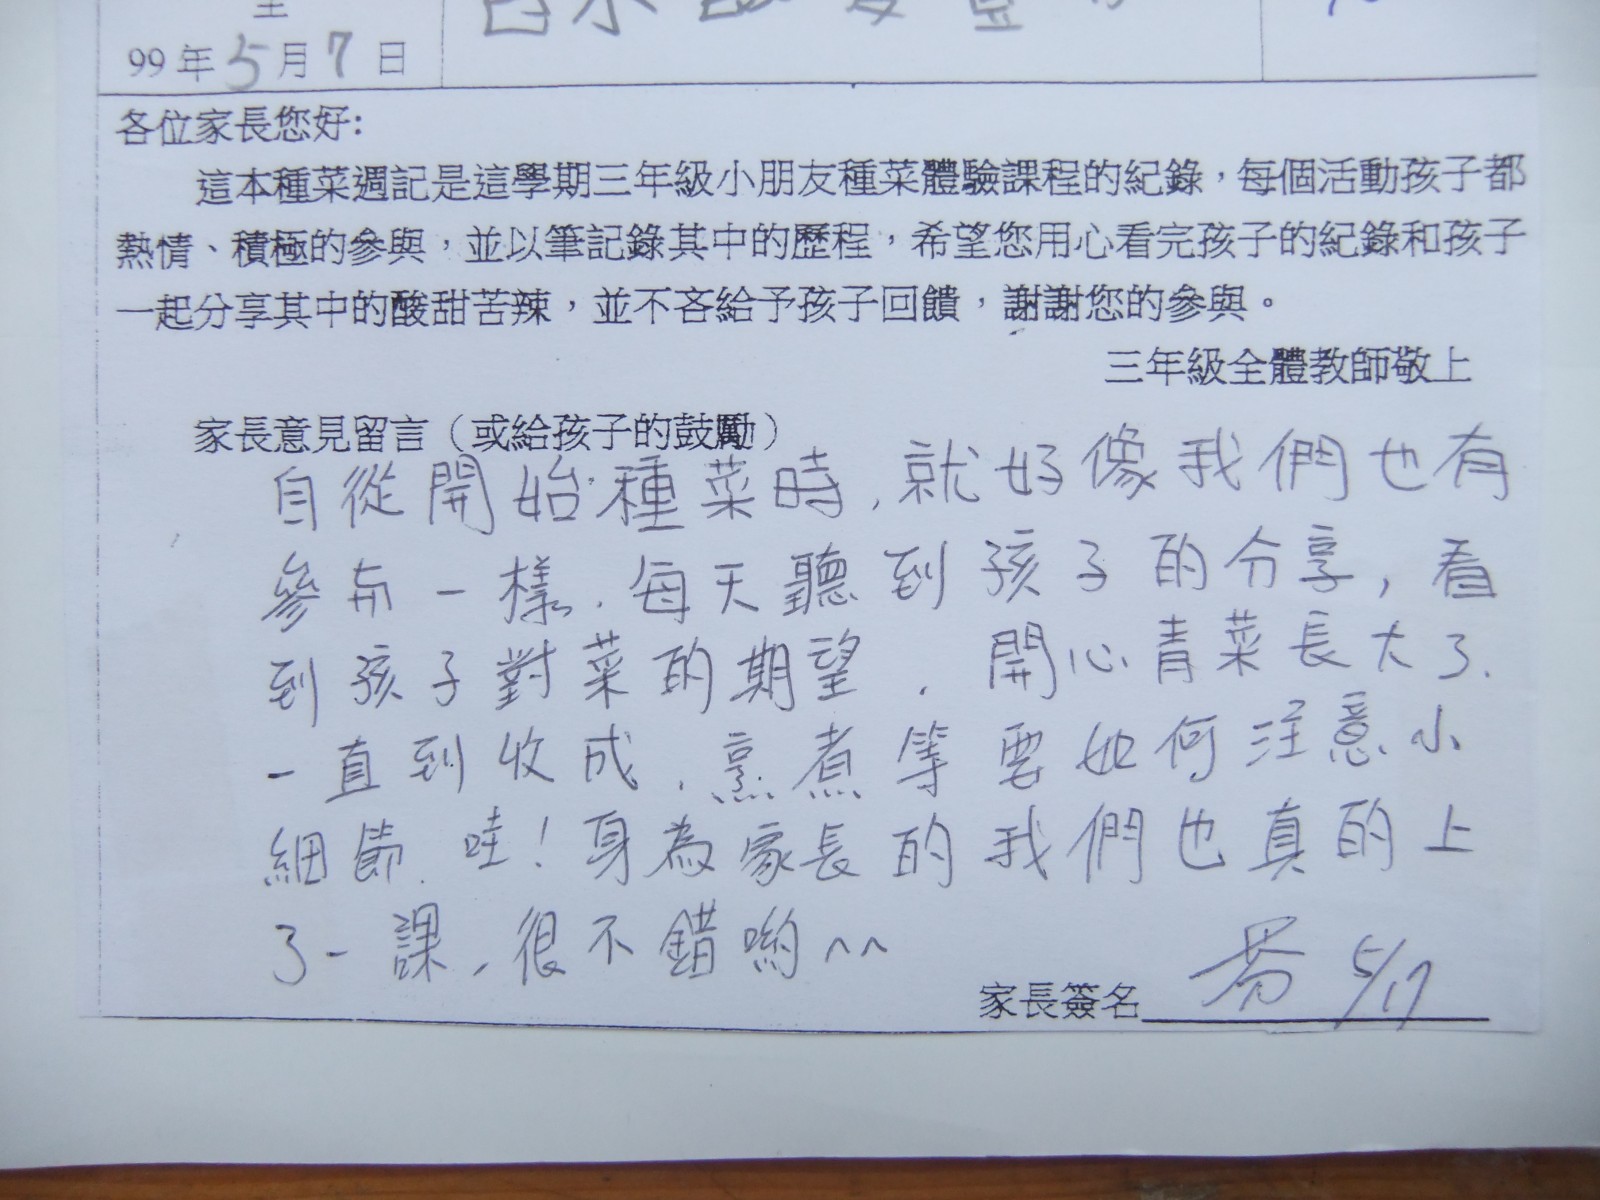 至
99年5月7日
各位家長您好:
這本種菜週記是這學期三年級小朋友種菜體驗課程的紀錄，每個活動孩子都
熱情、積極的參與，並以筆記錄其中的歷程，希望您用心看完孩子的紀錄和孩子
一起分享其中的酸甜苦辣，並不吝給予孩子回饋，謝謝您的參與。
三年級全體教師敬上
家長意見留言（或給孩子的鼓勵）
自從開始種菜時,就好像我們也有
參与一樣.每天聽到孩子的分享,看
到孩子對菜的期望.開心青菜長大了.
一直到收成.烹煮等要如何注意小
細節.哇!身為家長的我們也真的上
了一課,很不錯喲^^
家長簽名 5/17